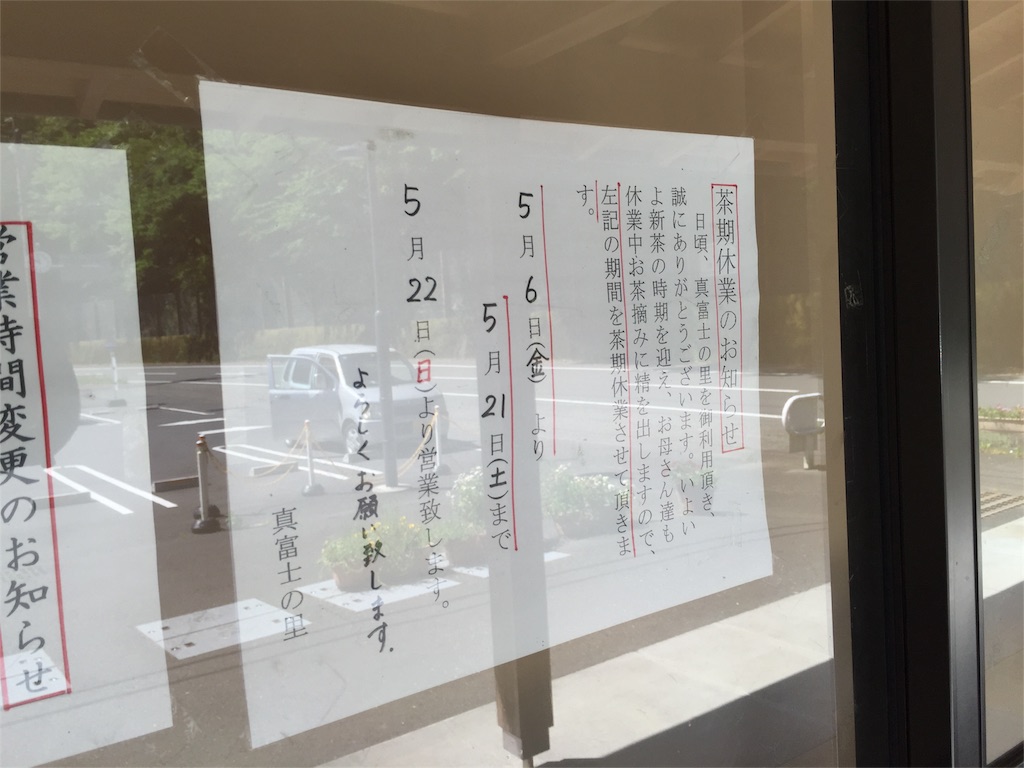 茶期休業のお知らせ
日頃、真富士の里を御利用頂き、
誠にありがとうございます。いよい
よ新茶の時期を迎え、お母さん達も
休業中お茶摘みに精を出しますので、
左記の期間を茶期休業させて頂きま
す。
5月6日(金)より
5月21日(土)まで
5月22日(日)より営業致します。
よろしくお願い致します.
真富士の里
営業時間変更のお知らせ